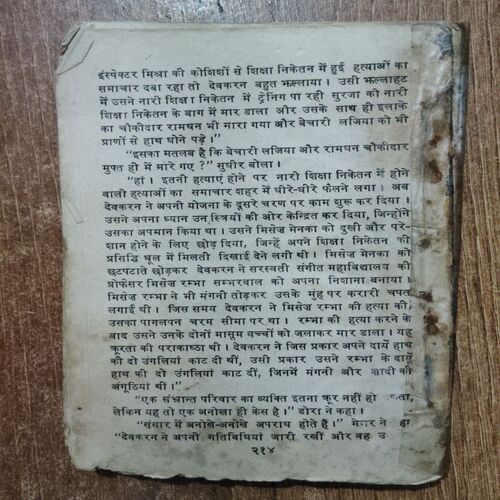 इंस्पेक्टर मिश्रा की कोशिशों से शिक्षा निकेतन में हुई हत्याओं का
समाचार दबा रहा तो देवकरन बहुत झल्लाया। उसी झल्लाहट
में उसने नारी शिक्षा निकेतन में ट्रेनिंग पा रही सुरजा को नारी
शिक्षा निकेतन के बाग में मार डाला और उसके साथ ही इलाके
का चौकीदार रामधन भी मारा गया और बेचारी लजिया को भी
प्राणों से हाथ धोने पड़े।"
"इसका मतलब है कि बेचारी लजिया और रामधन चौकीदार
मुफ्त ही में मारे गए?" सुधीर बोला।
"हां। इतनी हत्याएं होने पर नारी शिक्षा निकेतन में होने
वाली हत्याओं का समाचार शहर में धीरे-धीरे फैलने लगा। अब
देवकरन ने अपनी योजना के दूसरे चरण पर काम शुरू कर दिया।
उसने अपना ध्यान उन स्त्रियों की ओर केन्द्रित कर दिया, जिन्होंने
उसका अपमान किया था। उसने मिसेज मेनका को दुखी और परे-
शान होने के लिए छोड़ दिया, जिन्हें अपने शिक्षा निकेतन की
प्रसिद्धि धूल में मिलती दिखाई देने लगी थी। मिसेज मेनका को
छटपटाते छोड़कर देवकरन ने सरस्वती संगीत महाविद्यालय की
प्रोफेसर मिसेज रम्भा सम्भरवाल को अपना निशाना बनाया।
मिसेज रम्भा ने भी मंगनी तोड़कर उसके मुंह पर करारी चपत
लगाई थी। जिस समय देवकरन ने मिसेज रम्भा की हत्या की,
उसका पागलपन चरम सीमा पर था। रम्भा की हत्या करने के
बाद उसने उनके दोनों मासूम बच्चों को जलाकर मार डाला। यह
क्रूरता की पराकाष्ठा थी। देवकरन ने जिस प्रकार अपने दायें हाथ
की दो उंगलियां काट दी थीं, उसी प्रकार उसने रम्भा के दायें
हाथ की दो उंगलियां काट दीं, जिनमें मंगनी और शादी की
अंगूठियां थीं।"
"एक संभ्रान्त परिवार का व्यक्ति इतना क्रूर नहीं हो सकता,
लेकिन यह तो एक अनोखा ही केस है।" डोरा ने कहा।
"संसार में अनोखे-अनोखे अपराध होते हैं।" मेजर ने कहा
"देवकरन ने अपनी गतिविधियां जारी रखीं और वह
२१४